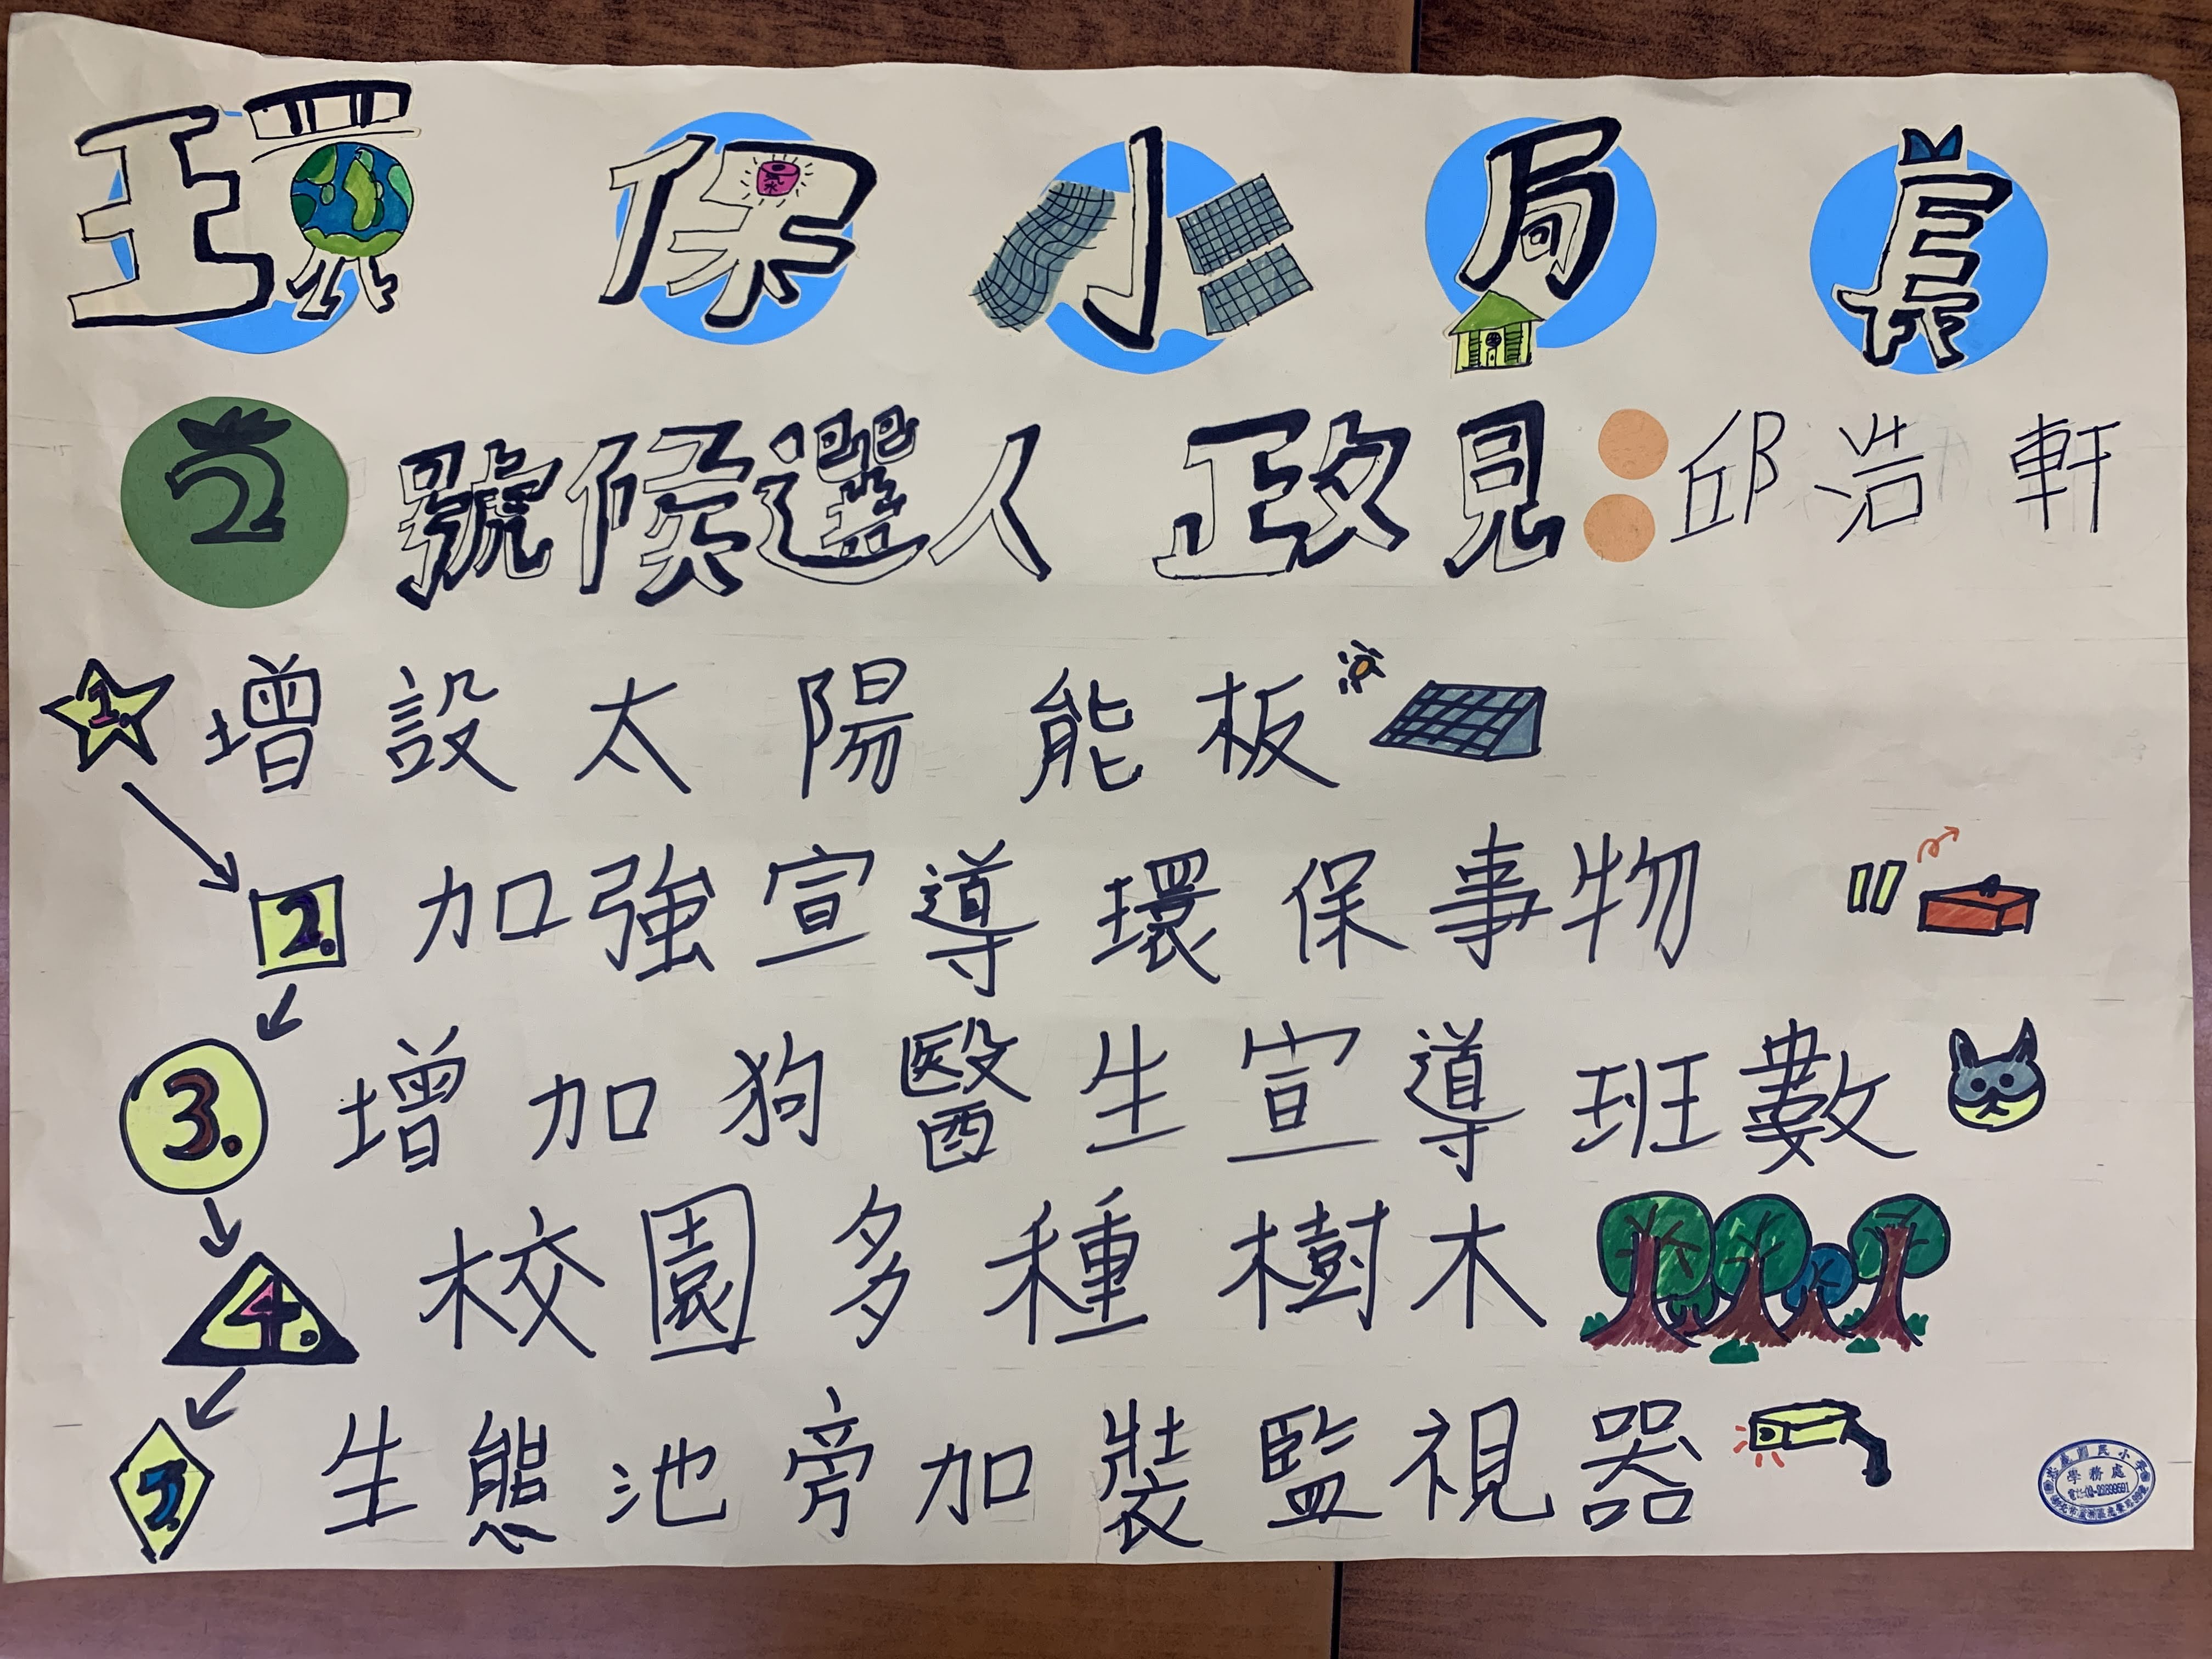 環保小局長
2號候選人 政見：邱浩軒
1. 增設太陽能板
2. 加強宣導環保事物
3. 增加狗醫生宣導班數
4. 校園多種樹木
5. 生態池旁加裝監視器
學務處